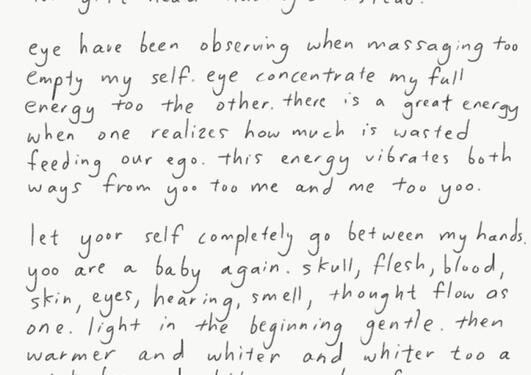 eye have been observing when massaging too
empty my self. eye concentrate my full
energy too the other. there is a great energy
when one realizes how much is wasted
feeding our ego. this energy vibrates both
ways from yoo too me and me too yoo.
let yoor self completely go between my hands.
yoo are a baby again. skull, flesh, blood,
skin, eyes, hearing, smell, thought flow as
one. light in the beginning gentle. then
warmer and whiter and whiter too a